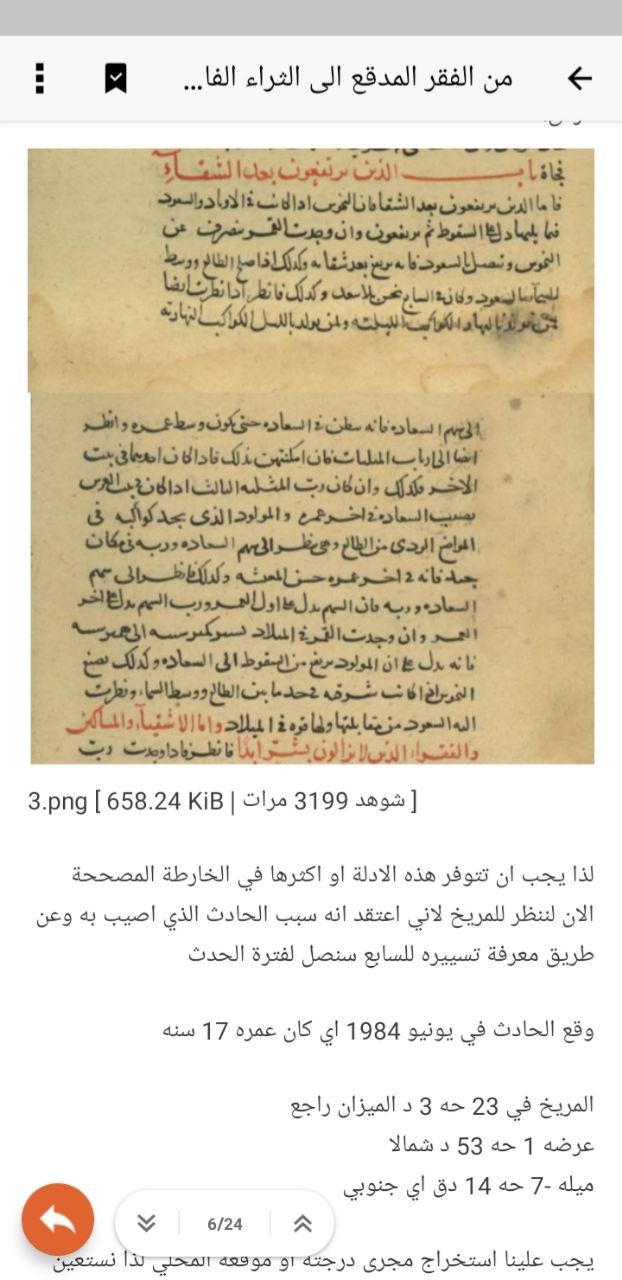 من الفقر المدقع الى الثراء الفا...
فجاة باب الذين يرتفعون بعد الشقاء
فاما الذين يرتفعون بعد الشقا فان النحوس اذا كانت في الاوتاد والسعود
فيما يليها دل على السقوط ثم يرتفعون وان وجدت القمر ينصرف عن
النحوس ويتصل بالسعود فانه يرتفع بعد شقا به وكذلك اذا صلح الطالع ووسط
السعود وكان في السابع نحس بلا سعد وكذلك فانظر اذا نظرت ايضا
الكواكب الليلية ولمن يولد بالليل الكواكب النهارية
الى سهم السعاده فانه في السعاده حتى يكون وسط عمره وانظر
ايضا الى ارباب المثلثات فان امكنتهن بذلك فاذا كان احدهما في بيت
الاخر فكذلك وان كان رب المثلثه الثالث اذا كان في بيت
يصيب السعاده في اخر عمره والمولود الذي يجد كواكبه في
المواضع الردى من الطالع وهي ينظر الى سهم السعاده وربه في مكان
جيد فانه في اخر عمره حسن المعيشه وكذلك فانظر الى سهم
السعاده وربه فان السهم يدل على اول العمر ورب السهم يدل على اخر
العمر وان وجدت القمر في الميلاد
فانه يدل على ان المولود يرتفع من السقوط الى السعاده وكذلك يصنع
النحوس اذا كانت شرقيه في حد ما بين الطالع ووسط السما ونظرت
اليه السعود من مقابلتها ولها قوه في الميلاد واما الاشقياء والمساكين
والفقراء الذين لا يزالون بشر ابدا فانظر فاذا وجدت رب
3.png [ 658.24 KiB | شوهد 3199 مرات ]
لذا يجب ان تتوفر هذه الادلة او اكثرها في الخارطة المصححة
الان لننظر للمريخ لاني اعتقد انه سبب الحادث الذي اصيب به وعن
طريق معرفة تسييره للسابع سنصل لفترة الحدث
وقع الحادث في يونيو 1984 اي كان عمره 17 سنه
المريخ في 23 حه 3 د الميزان راجع
عرضه 1 حه 53 د شمالا
ميله -7 حه 14 دق اي جنوبي
6/24
يجب علينا استخراج مجرى درجته او موقعه المحلي لذا نستعين